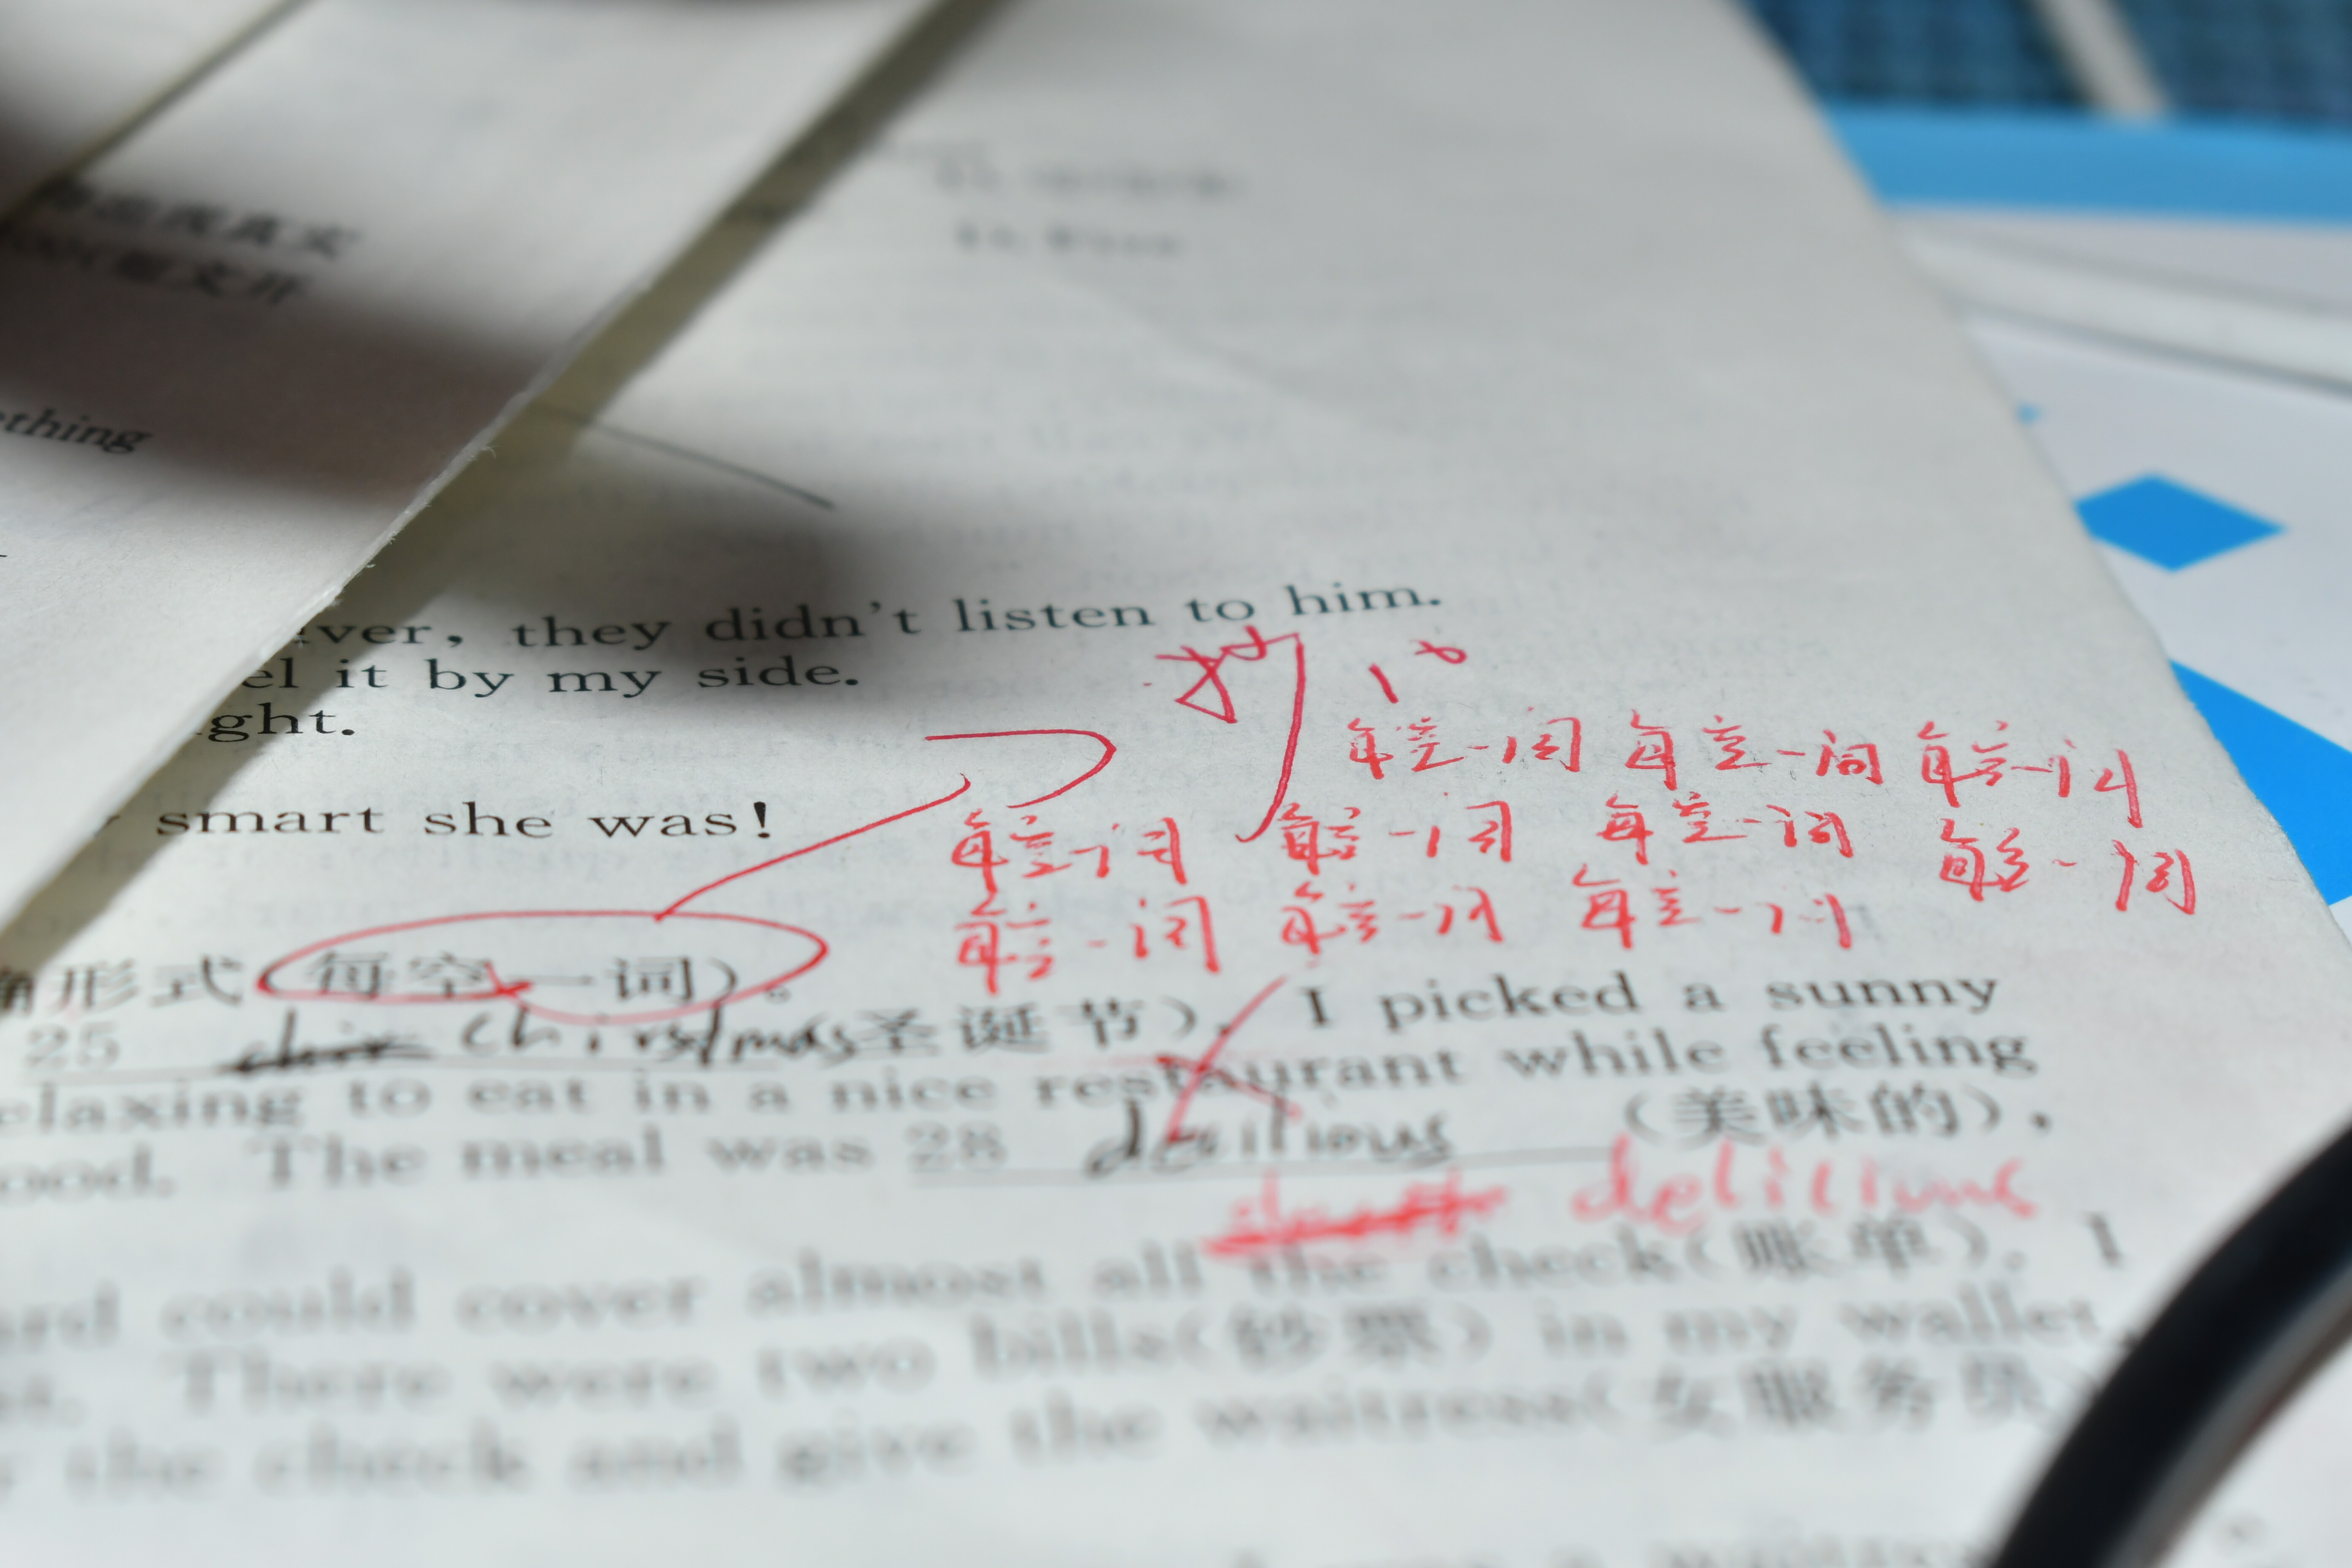 ething
, they didn't listen to him.
el it by my side.
ght.
抄10
每空一词 每空一词 每空一词
smart she was!
每空一词 每空一词 每空一词 每空一词
每空一词 每空一词 每空一词
形式(每空一词)。
25 Chirstmas圣诞节). I picked a sunny
elaxing to eat in a nice restaurant while feeling
ood. The meal was 28 delilious (美味的),
delilious
ard could cover almost all the check(账单). I
There were two bills(钞票) in my wallet,
the check and give the waitress(女服务员)